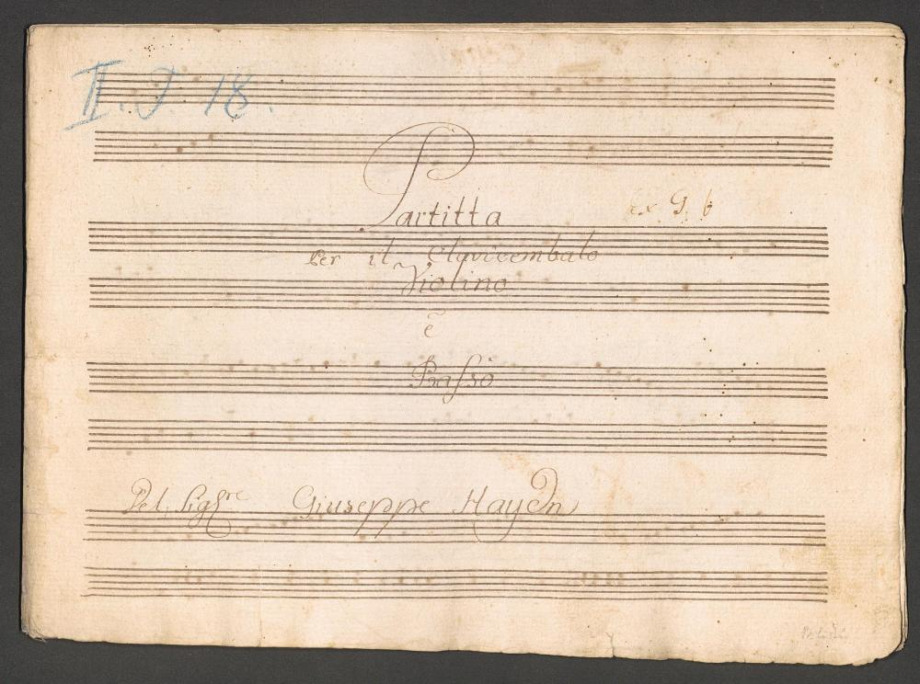 II. J. 18.
Partitta
ex G, b
Per il Clavicembalo
Violino
è
Basso
Del Sigre Giuseppe Haydn